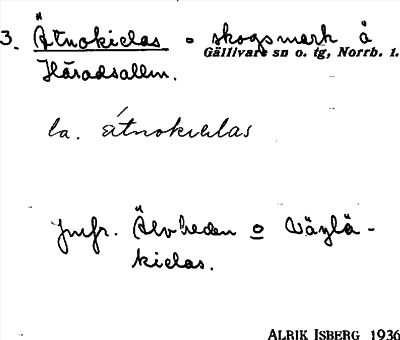 3. Ätnokielas o skogsmark å
Gällivare sn o. tg, Norrb. l.
Häradsallm.
la. átnokielas
Jmfr. Älvheden o Väylä-
kielas.
ALRIK ISBERG 1936